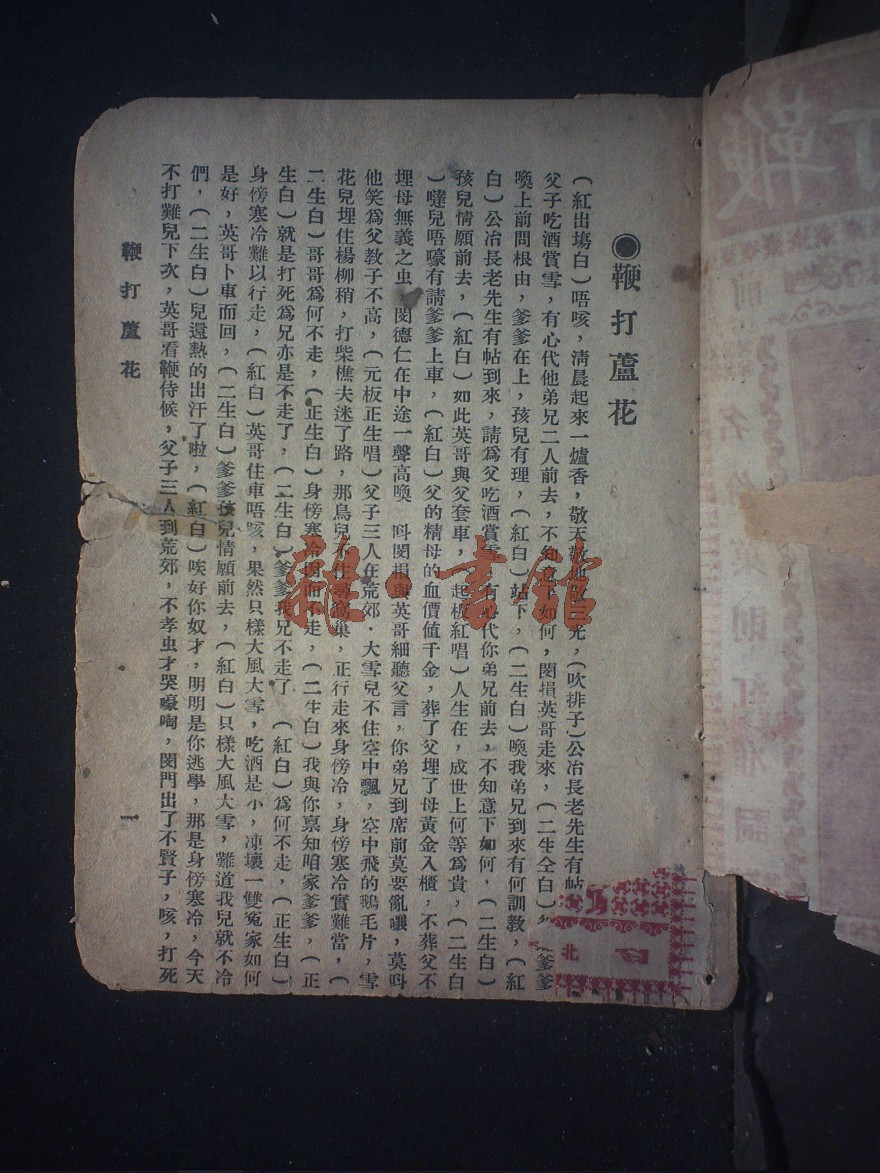 ●鞭打蘆花
(紅出塲白)唔咳，清晨起來一爐香，敬天敬地敬三光，(吹排子)公冶長老先生有帖
父子吃酒賞雪，有心代他弟兄二人前去，不知意下如何，閔損英哥走來，(二生仝白)爹爹
喚上前問根由，爹爹在上，孩兒有理，(紅白)站下，(二生白)喚我弟兄到來有何訓教，(紅
白)公冶長老先生有帖到來，請爲父吃酒賞雪，有心代你弟兄前去，不知意下如何，(二生白)
孩兒情願前去，(紅白)如此英哥與父套車，(起板紅唱)人生在，成世上何等爲貴，(二生白
)噠兒唔嚎有請爹爹上車，(紅白)父的精母的血價值千金，葬了父埋了母黃金入櫃，不葬父不
埋母無義之虫，閔德仁在中途一聲高喚 呌閔損與英哥細聽父言，你弟兄到席前莫要亂嚷，莫呌
他笑爲父教子不高，(元板正生唱)父子三人在荒郊．大雪兒不住空中飄，空中飛的鵝毛片，雪
花兒埋住楊柳稍，打柴樵夫迷了路，那鳥兒不住尋窩巢，正行走來身傍冷，身傍寒冷實難當，(
二生白)哥哥爲何不走，(正生白)身傍寒冷因而不走，(二生白)我與你禀知咱家爹爹，(正
生白)就是打死爲兄亦是不走了，(二生白)爹爹我兄不走了 (紅白)爲何不走，(正生白)
身傍寒冷難以行走，(紅白)英哥住車唔咳，果然只樣大風大雪，吃酒是小，凍壞一雙寃家如何
是好，英哥卜車而回，(二生白)爹爹孩兒情願前去，(紅白)只樣大風大雪，難道我兒就不冷
們，(二生白)兒還熱的出汗了啦，(紅白)唉好你奴才，明明是你逃學，那是身傍寒冷，今天
不打難兒下次，英哥看鞭侍候，父子三人到荒郊，不孝虫才哭嚎啕，閔門出了不賢子，咳，打死
鞭打蘆花 一
鞭
北
雜·書館